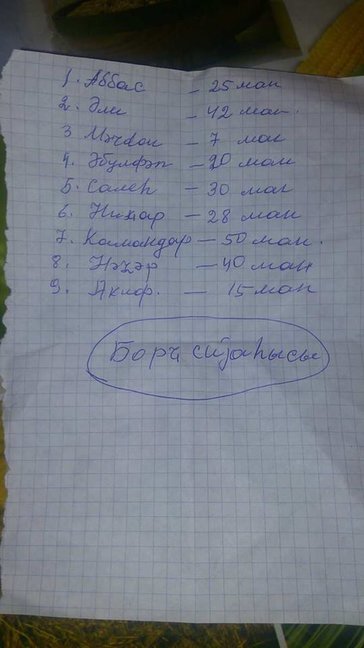 1. Аббас – 25 ман
2. Әли – 42 ман.
3 Мәҹдои – 7 ман
4. Әбулфәт – 20 ман
5. Салеһ – 30 ман
6. Ниҝар – 28 ман
7. Камандар – 50 ман.
8. Нәзәр – 40 ман
9. Акиф. – 15 ман
Борҹ сијаһысы